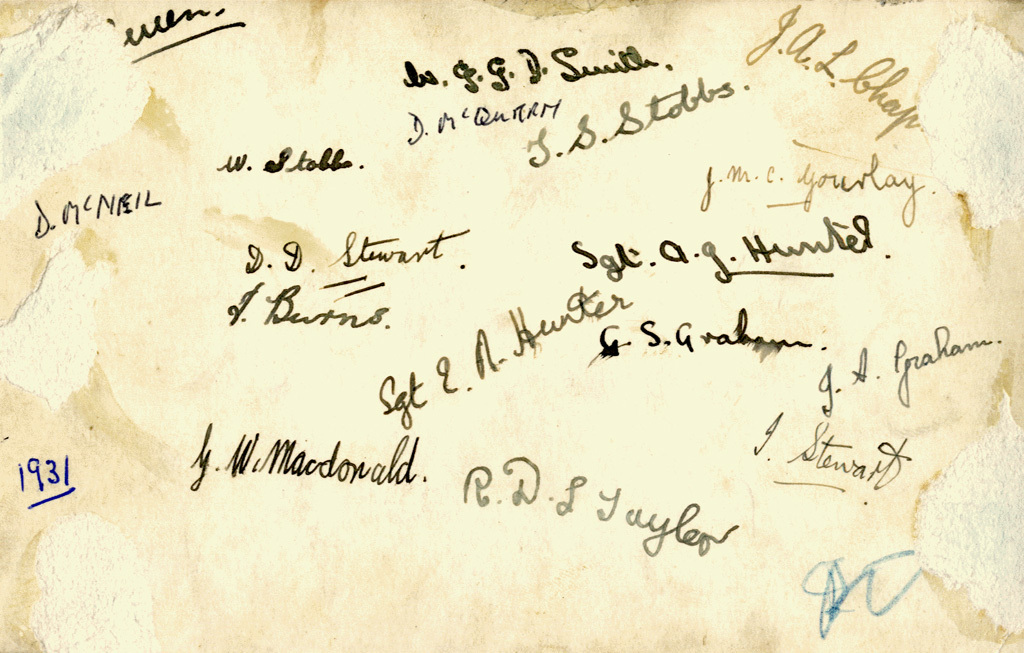 W. G. G. D. Smith.
J. A. L. Chap
D. McQUARM
J. S. Stobbs.
W. Stobbs.
J. M. C. Gourlay.
D. McNEIL
D. D. Stewart.
Sgt. A. G. Hunter.
J. Burns.
Sgt E. R. Hunter
G. S. Graham.
J. A. Graham.
G. W. Macdonald.
J. Stewart
1931
R. D. L Taylor